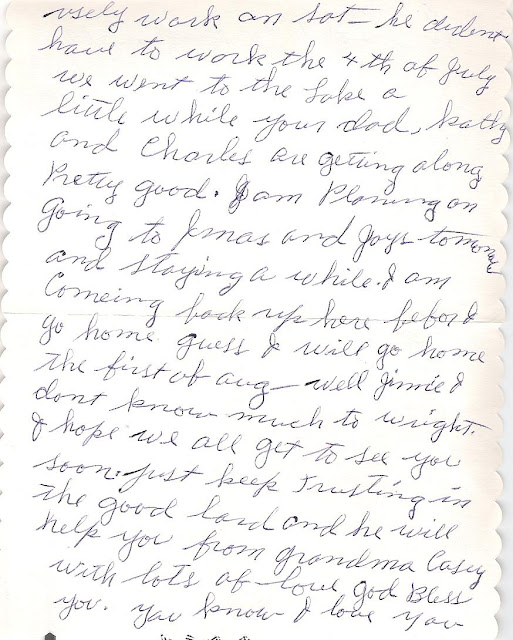 usely work on sat - he dident
have to work the 4th of July
we went to the Lake a
little while your dad, Kathy
and Charles are getting along
Pretty good. I am Planing on
Going to Jenas and Joys tomorrow
and staying a while. I am
Comeing back up here befor I
go home guess I will go home
the first of aug - well Jimie I
dont know much to wright.
I hope we all get to see you
soon. just keep trusting in
the good lard and he will
help you from grandma Casey
with lots of love god Bless
you. you know I love you